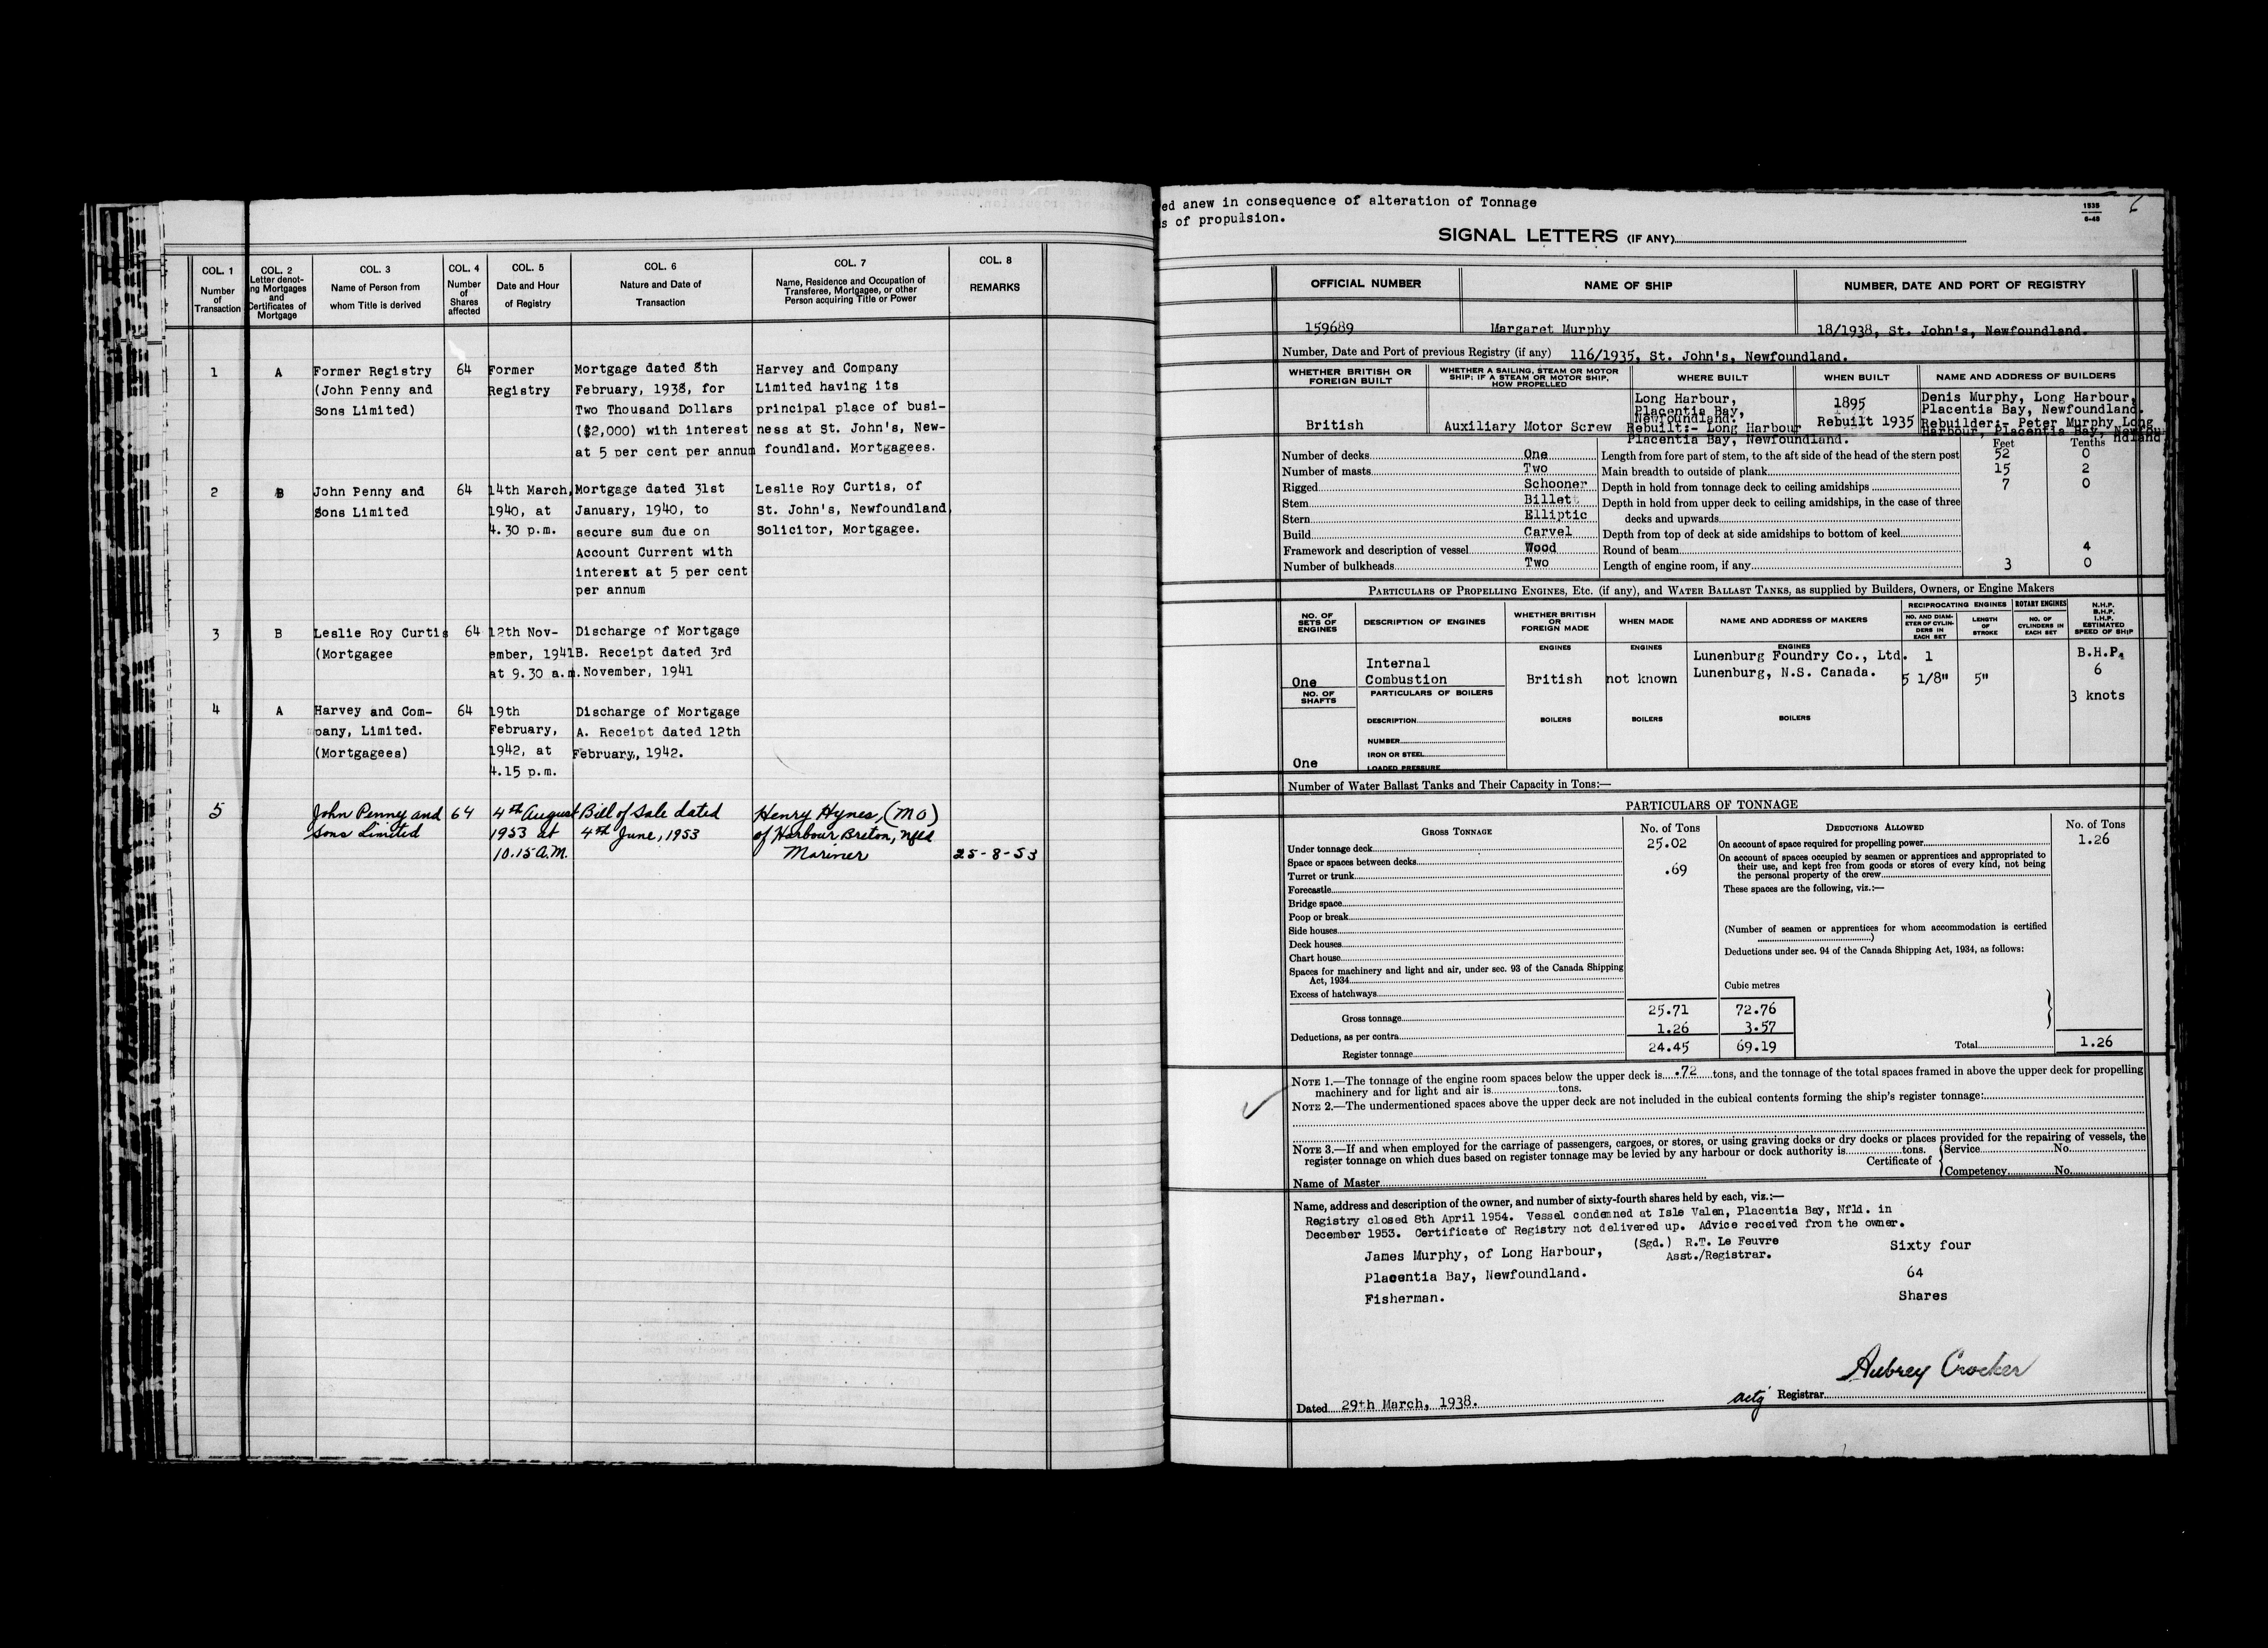 COL. 1
Number
of
Transaction
COL. 2
Letter denot-
ng Mortgages
and
Certificates of
Mortgage
COL. 3
Name of Person from
whom Title is derived
COL. 4
Number
of
Shares
affected
COL. 5
Date and Hour
of Registry
COL. 6
Nature and Date of
Transaction
COL. 7
Name, Residence and Occupation of
Transferee, Mortgagee, or other
Person acquiring Title or Power
COL. 8
REMARKS
1
A
Former Registry
(John Penny and
Sons Limited)
64
Former
Registry
Mortgage dated 8th
February, 1938, for
Two Thousand Dollars
($2,000) with interest
at 5 per cent per annum
Harvey and Company
Limited having its
principal place of busi-
ness at St. John's, New-
foundland. Mortgagees.
2
B
John Penny and
Sons Limited
64
14th March,
1940, at
4.30 p.m.
Mortgage dated 31st
January, 1940, to
secure sum due on
Account Current with
interest at 5 per cent
per annum
Leslie Roy Curtis, of
St. John's, Newfoundland,
Solicitor, Mortgagee.
3
B
Leslie Roy Curtis
(Mortgagee
64
12th Nov-
ember, 1941
at 9.30 a.m.
Discharge of Mortgage
B. Receipt dated 3rd
November, 1941
4
A
Harvey and Com-
pany, Limited.
(Mortgagees)
64
19th
February,
1942, at
4.15 p.m.
Discharge of Mortgage
A. Receipt dated 12th
February,, 1942.
5
John Penny and
Sons Limited
64
4th August
1953 at
10.15 A.M.
Bill of Sale dated
4th June, 1953
Henry Hynes, (MO)
of Harbour Breton, Nfld
Mariner
25-8-53
ed anew in consequence of alteration of Tonnage
s of propulsion.
1535
6-48
6
SIGNAL LETTERS (IF ANY)
OFFICIAL NUMBER
NAME OF SHIP
NUMBER, DATE AND PORT OF REGISTRY
159689
Margaret Murphy
18/1938, St. John's, Newfoundland.
Number, Date and Port of previous Registry (if any) 116/1935, St. John's, Newfoundland.
WHETHER BRITISH OR
FOREIGN BUILT
WHETHER A SAILING, STEAM OR MOTOR
SHIP; IF A STEAM OR MOTOR SHIP,
HOW PROPELLED
WHERE BUILT
WHEN BUILT
NAME AND ADDRESS OF BUILDERS
British
Auxiliary Motor Screw
Long Harbour,
Placentia Bay,
Newfoundland.
Rebuilt:- Long Harbour
Placentia Bay, Newfoundland.
1895
Rebuilt 1935
Denis Murphy, Long Harbour,
Placentia Bay, Newfoundland.
Rebuilder:- Peter Murphy Long
Harbour, Placentia Bay, Newfou
ndland
Number of decks One
Number of masts Two
Rigged Schooner
Stem Billet
Stern Elliptic
Build Carvel
Framework and description of vessel Wood
Number of bulkheads Two
Feet Tenths
Length from fore part of stem, to the aft side of the head of the stern post 52 0
Main breadth to outside of plank 15 2
Depth in hold from tonnage deck to ceiling amidships 7 0
Depth in hold from upper deck to ceiling amidships, in the case of three
decks and upwards
Depth from top of deck at side amidships to bottom of keel
Round of beam 4
Length of engine room, if any 3 0
PARTICULARS OF PROPELLING ENGINES, ETC. (if any), and WATER BALLAST TANKS, as supplied by Builders, Owners, or Engine Makers
NO. OF
SETS OF
ENGINES
DESCRIPTION OF ENGINES
WHETHER BRITISH
OR
FOREIGN MADE
WHEN MADE
NAME AND ADDRESS OF MAKERS
RECIPROCATING ENGINES
NO. AND DIAM-
ETER OF CYLIN-
DERS IN
EACH SET
LENGTH
OF
STROKE
ROTARY ENGINES
NO. OF
CYLINDERS IN
EACH SET
N.H.P.
B.H.P.
I.H.P.
ESTIMATED
SPEED OF SHIP
ENGINES
ENGINES
ENGINES
One
Internal
Combustion
British
not known
Lunenburg Foundry Co., Ltd.
Lunenburg, N.S. Canada.
1
5 1/8"
5"
B.H.P.
6
3 knots
NO. OF
SHAFTS
PARTICULARS OF BOILERS
DESCRIPTION
BOILERS
BOILERS
BOILERS
NUMBER
IRON OR STEEL
LOADED PRESSURE
One
Number of Water Ballast Tanks and Their Capacity in Tons:—
PARTICULARS OF TONNAGE
GROSS TONNAGE
No. of Tons
DEDUCTIONS ALLOWED
No. of Tons
Under tonnage deck 25.02
Space or spaces between decks
Turret or trunk .69
Forecastle
Bridge space
Poop or break
Side houses
Deck houses
Chart house
Spaces for machinery and light and air, under sec. 93 of the Canada Shipping
Act, 1934
Excess of hatchways
Gross tonnage 25.71 72.76
Deductions, as per contra 1.26 3.57
Register tonnage 24.45 69.19
On account of space required for propelling power 1.26
On account of spaces occupied by seamen or apprentices and appropriated to
their use, and kept free from goods or stores of every kind, not being
the personal property of the crew
These spaces are the following, viz.:—
(Number of seamen or apprentices for whom accommodation is certified
)
Deductions under sec. 94 of the Canada Shipping Act, 1934, as follows:
Cubic metres
Total 1.26
NOTE 1.—The tonnage of the engine room spaces below the upper deck is .72 tons, and the tonnage of the total spaces framed in above the upper deck for propelling
machinery and for light and air is tons.
NOTE 2.—The undermentioned spaces above the upper deck are not included in the cubical contents forming the ship's register tonnage:
NOTE 3.—If and when employed for the carriage of passengers, cargoes, or stores, or using graving docks or dry docks or places provided for the repairing of vessels, the
register tonnage on which dues based on register tonnage may be levied by any harbour or dock authority is tons.
Certificate of
Service No.
Competency No.
Name of Master
Name, address and description of the owner, and number of sixty-fourth shares held by each, viz.:—
Registry closed 8th April 1954. Vessel condemned at Isle Valen, Placentia Bay, Nfld. in
December 1953. Certificate of Registry not delivered up. Advice received from the owner.
(Sgd.) R.T. Le Feuvre
Asst./Registrar.
James Murphy, of Long Harbour,
Placentia Bay, Newfoundland.
Fisherman.
Sixty four
64
Shares
Aubrey Crocker
Dated 29th March, 1938.
actg Registrar